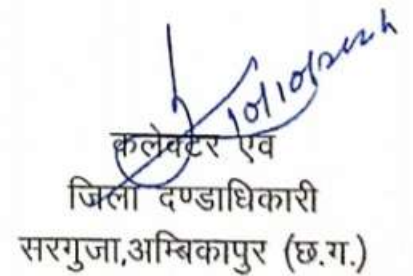 10/10/2024
कलेक्टर एवं
जिला दण्डाधिकारी
सरगुजा,अम्बिकापुर (छ.ग.)